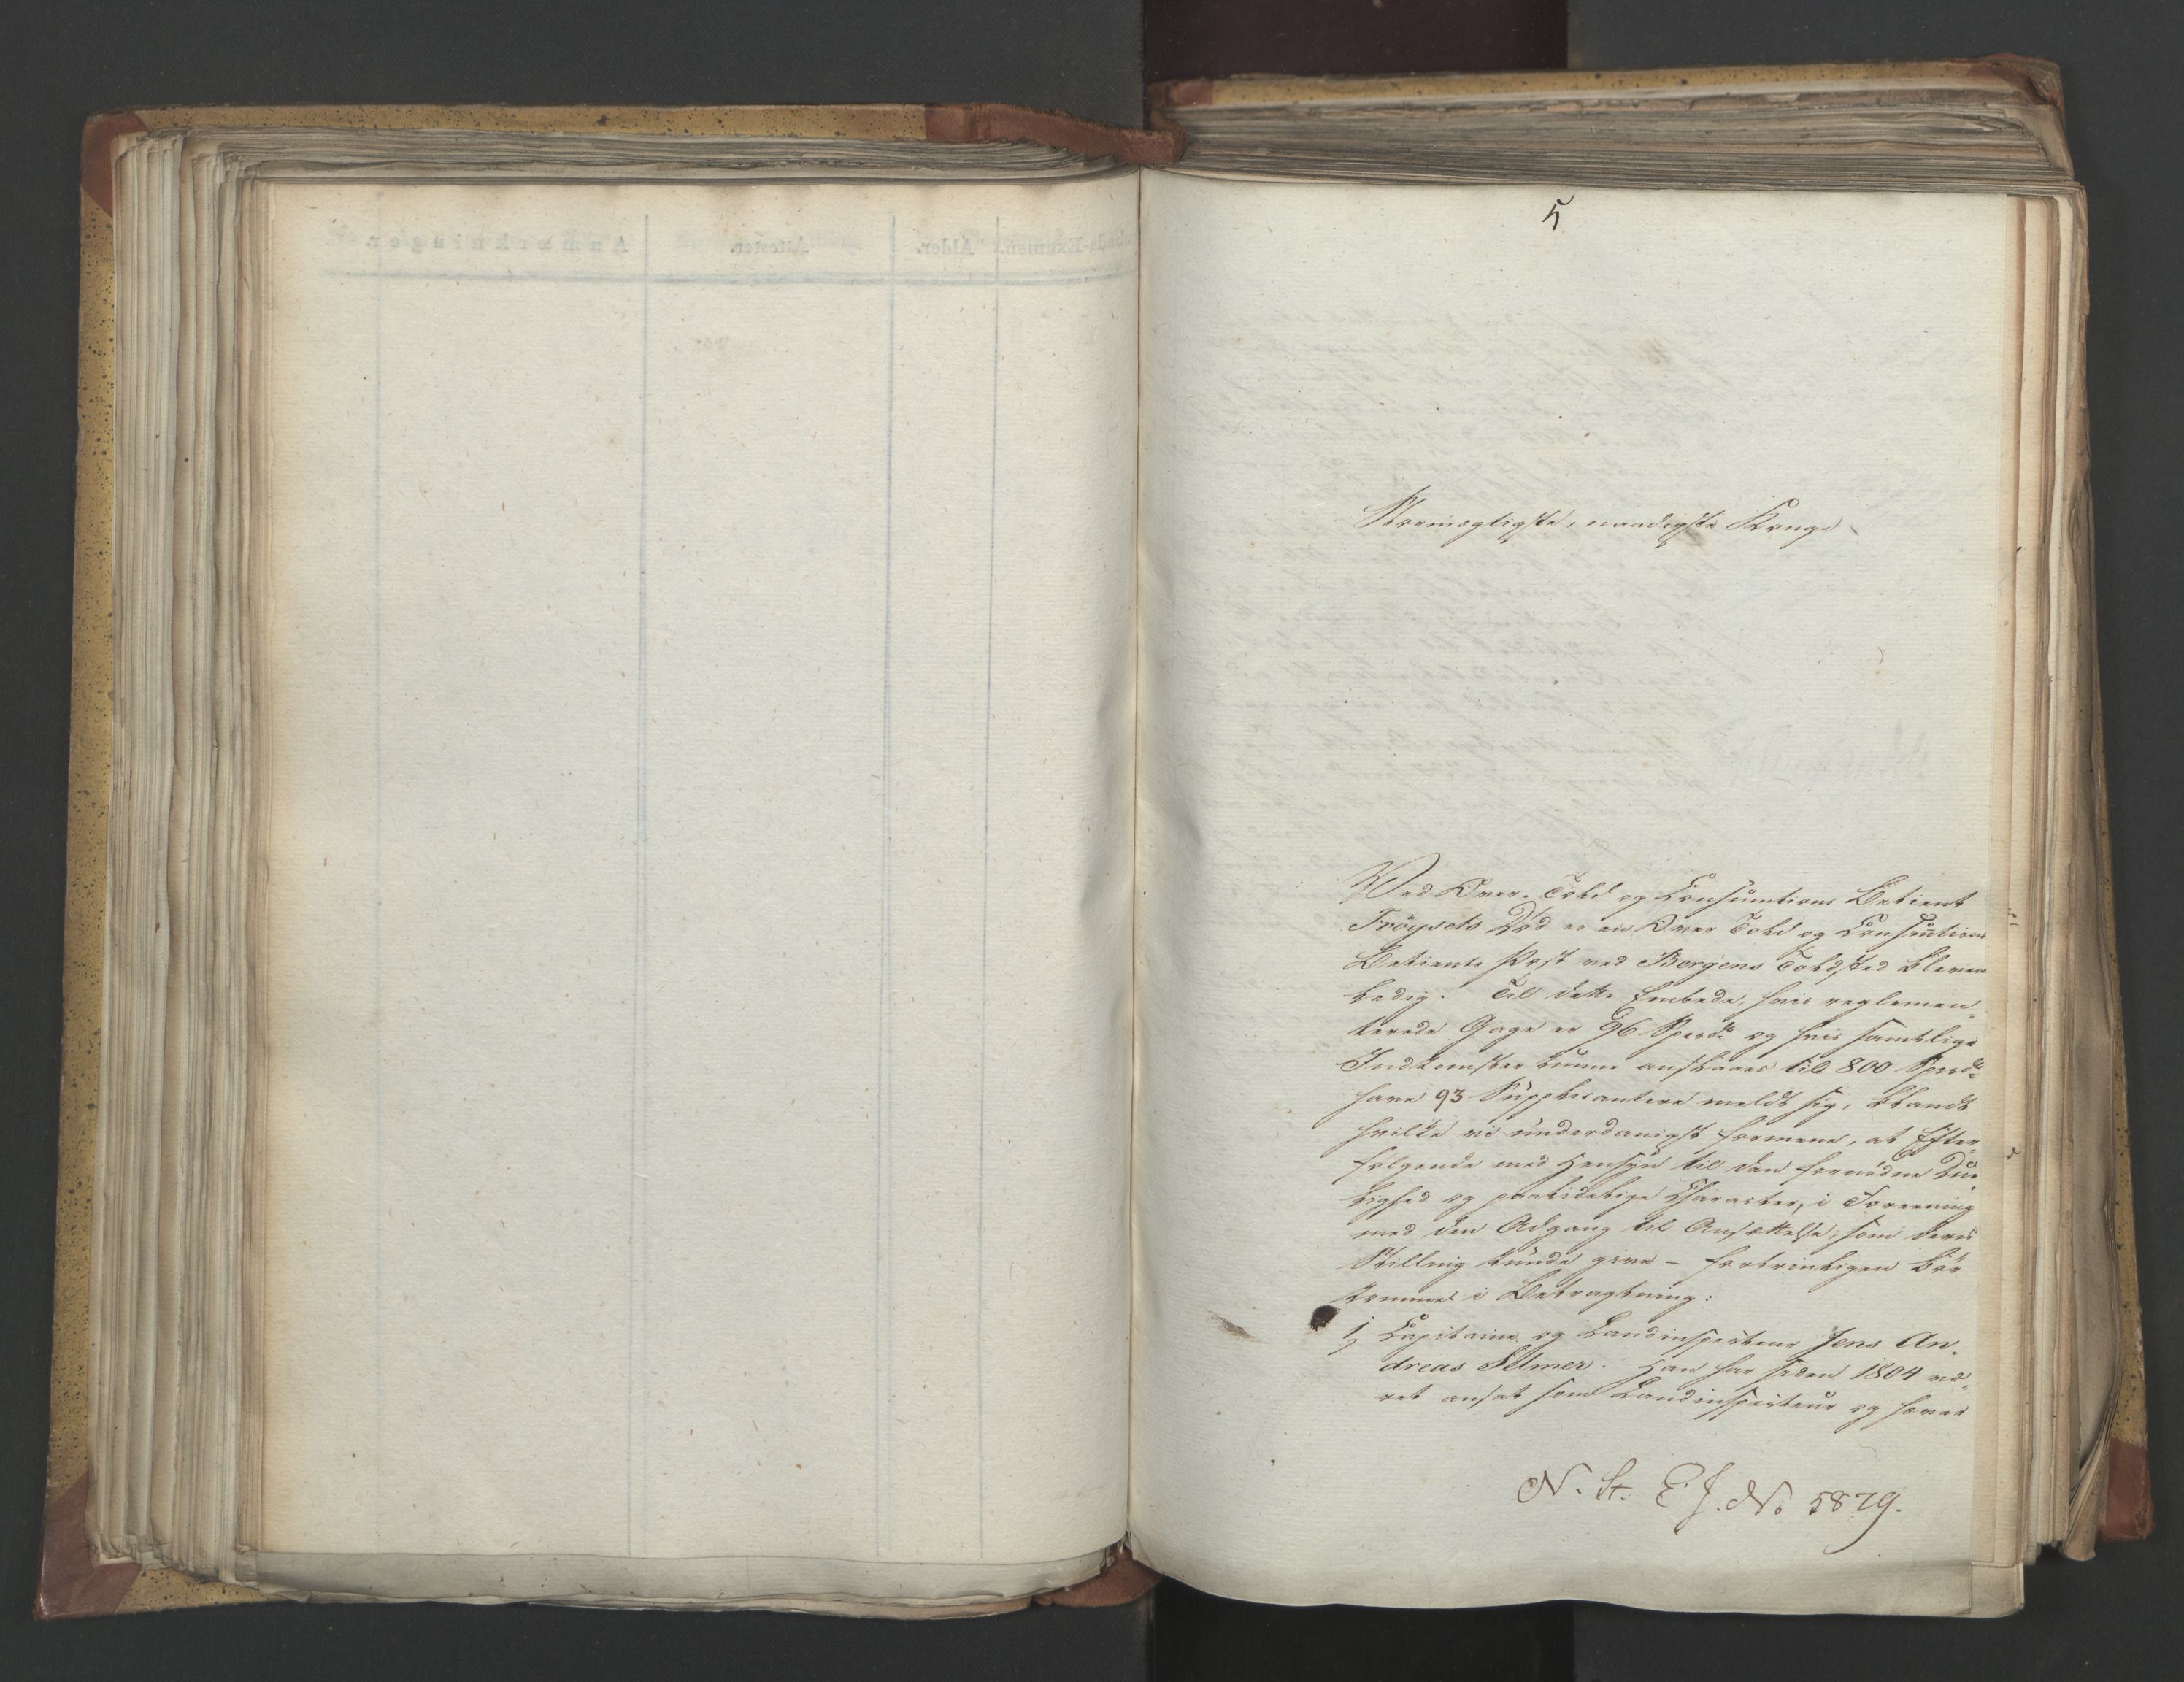 5
Stormægtigste, naadigste Konge
Ved Over-Told og Consumtions Betient
Fröysets Död er en Over Told og Consumtions
Betients Post ved Bergens Toldsted bleven
ledig. Til dette Embede, hvis reglemen-
terede Gage er 96 Spesd. og hvis samtlige
Indkomster kunne anslaaes til 800 Spesd.
have 93 Supplicantere meldt sig, blandt
hvilke vi underdanigst formene, at Efter-
følgende med Hensyn til den fornødne Due-
lighed og paalidelige Character, i Forening
med den Adgang til Ansættelse, som deres
Stilling kunde give – fortrinligen bör
komme i Betragtning:
1, Capitaine og Landinspecteur Jens An-
dreas Selmer. Han har siden 1804 væ-
ret ansat som Landinspecteur og
N. St. E. J. No 5879.